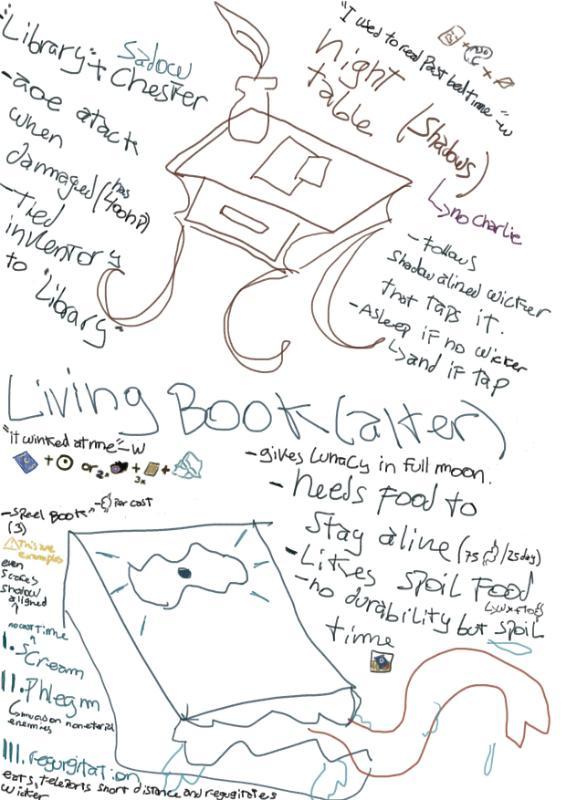 "Library" + sadow Chester
-aoe atack
when
damaged (has 400hp)
-Tied
inventory
to "Library"
"I used to read Past bedtime"-w
night
table (Shadows)
↳no charlie
-Follows
shadow alined wicker
that taps it.
-Asleep if no wicker
↳and if tap
Living Book (alter)
"it winked at me"-w
+ or 2x + 3x +
-gives lunacy in full moon.
-needs food to
stay alive (75 /25day)
-Likes spoil food
-no durability but spoil
time
-spell book
(3)
- Per cost
This are
examples
even
scares
shadow
aligned
no cast time
I. scream
II. Phlegm
III. regurgitation
eats, teleports short distance and regugitates
wicker